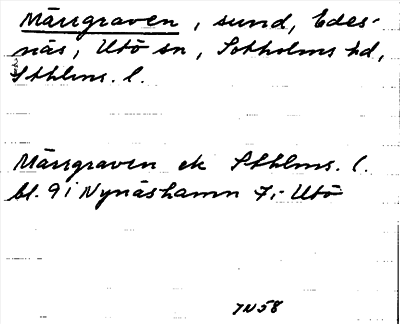 Märrgraven, sund, Edes-
näs, Utö sn, Sotholms hd,
Sthlms. l.
Märrgraven ek Sthlms. l.
bl. 9 i Nynäshamn 7i Utö
7N58